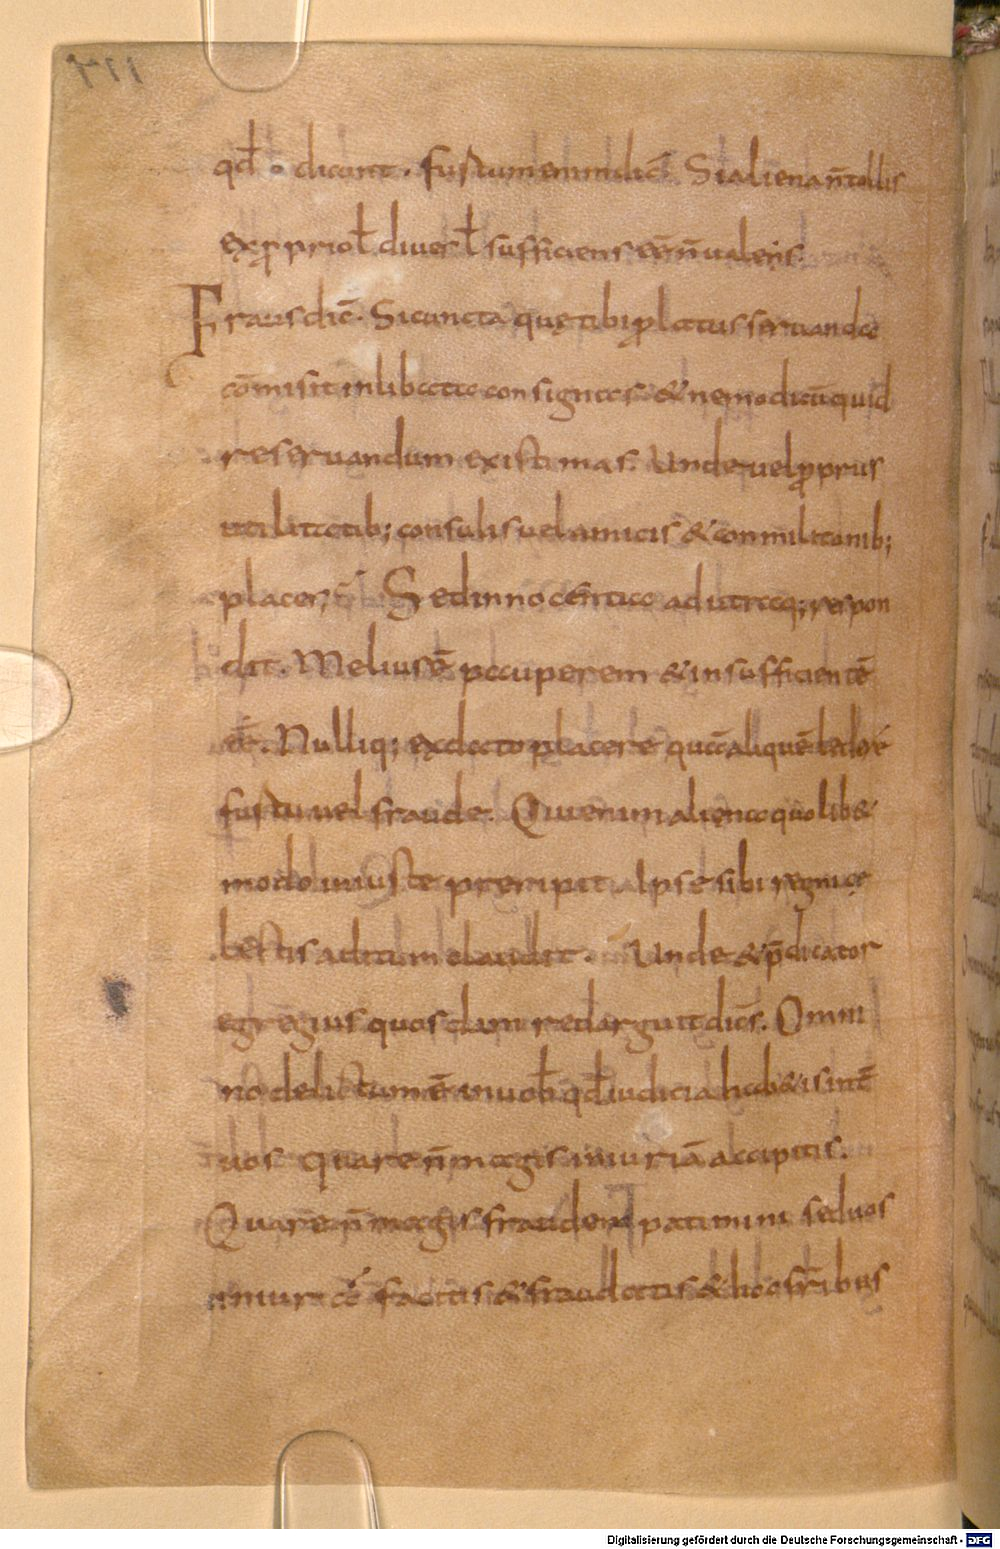 qđ · dicunt · furtum enim dic̄. Si aliena n̄ tollis
ex ꝓprio ł diuers ł sufficiens eē n̄ ualebis.
Fraus dic̄. Si cuncta quę tibi p̄latus seruanda
cōmisit in libertate consignes & nemo dicū quid
reseruandum existimas. Unde uel ꝓpriis
utilitatib; consulis uel amicis & conmilitonib;
placere
Sed innocentia ad utraq; respon
dit. Melius ē pauperem & insufficientē
eē. Nulliq; ex dato placere quā aliquē ledere
furtu uel fraude. Qui enim aliena quolib&
modo iniuste preripit ipse sibi regni cę
lestis aditum claudit. Unde & p̄dicator
egregius quosdam redarguit dicēs. Omni
no delictum ē in uob qđ iudicia hab&is int̄
uos quare n̄ magis iniuriā accipitis.
Quare n̄ magis fraudem patimini sed uos
iniuriā facitis & fraudatis & hoc fr̄ibus
Digitalisierung gefördert durch die Deutsche Forschungsgemeinschaft - DFG